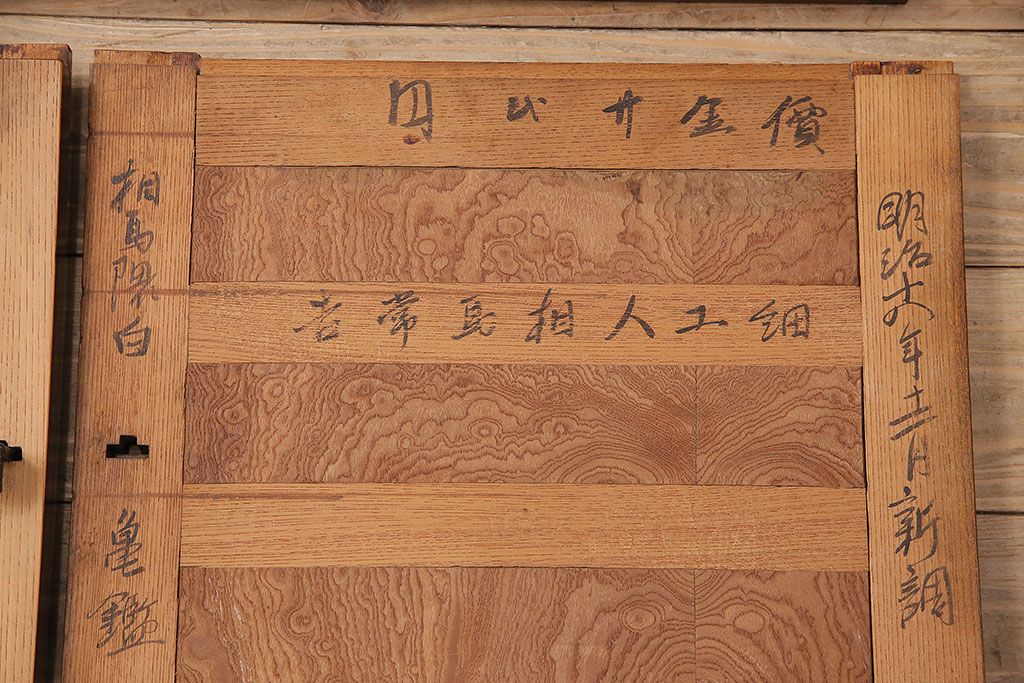 明治十六年十二月新調
價金廿弍円
細工人相馬常吉
相馬白
亀鑑